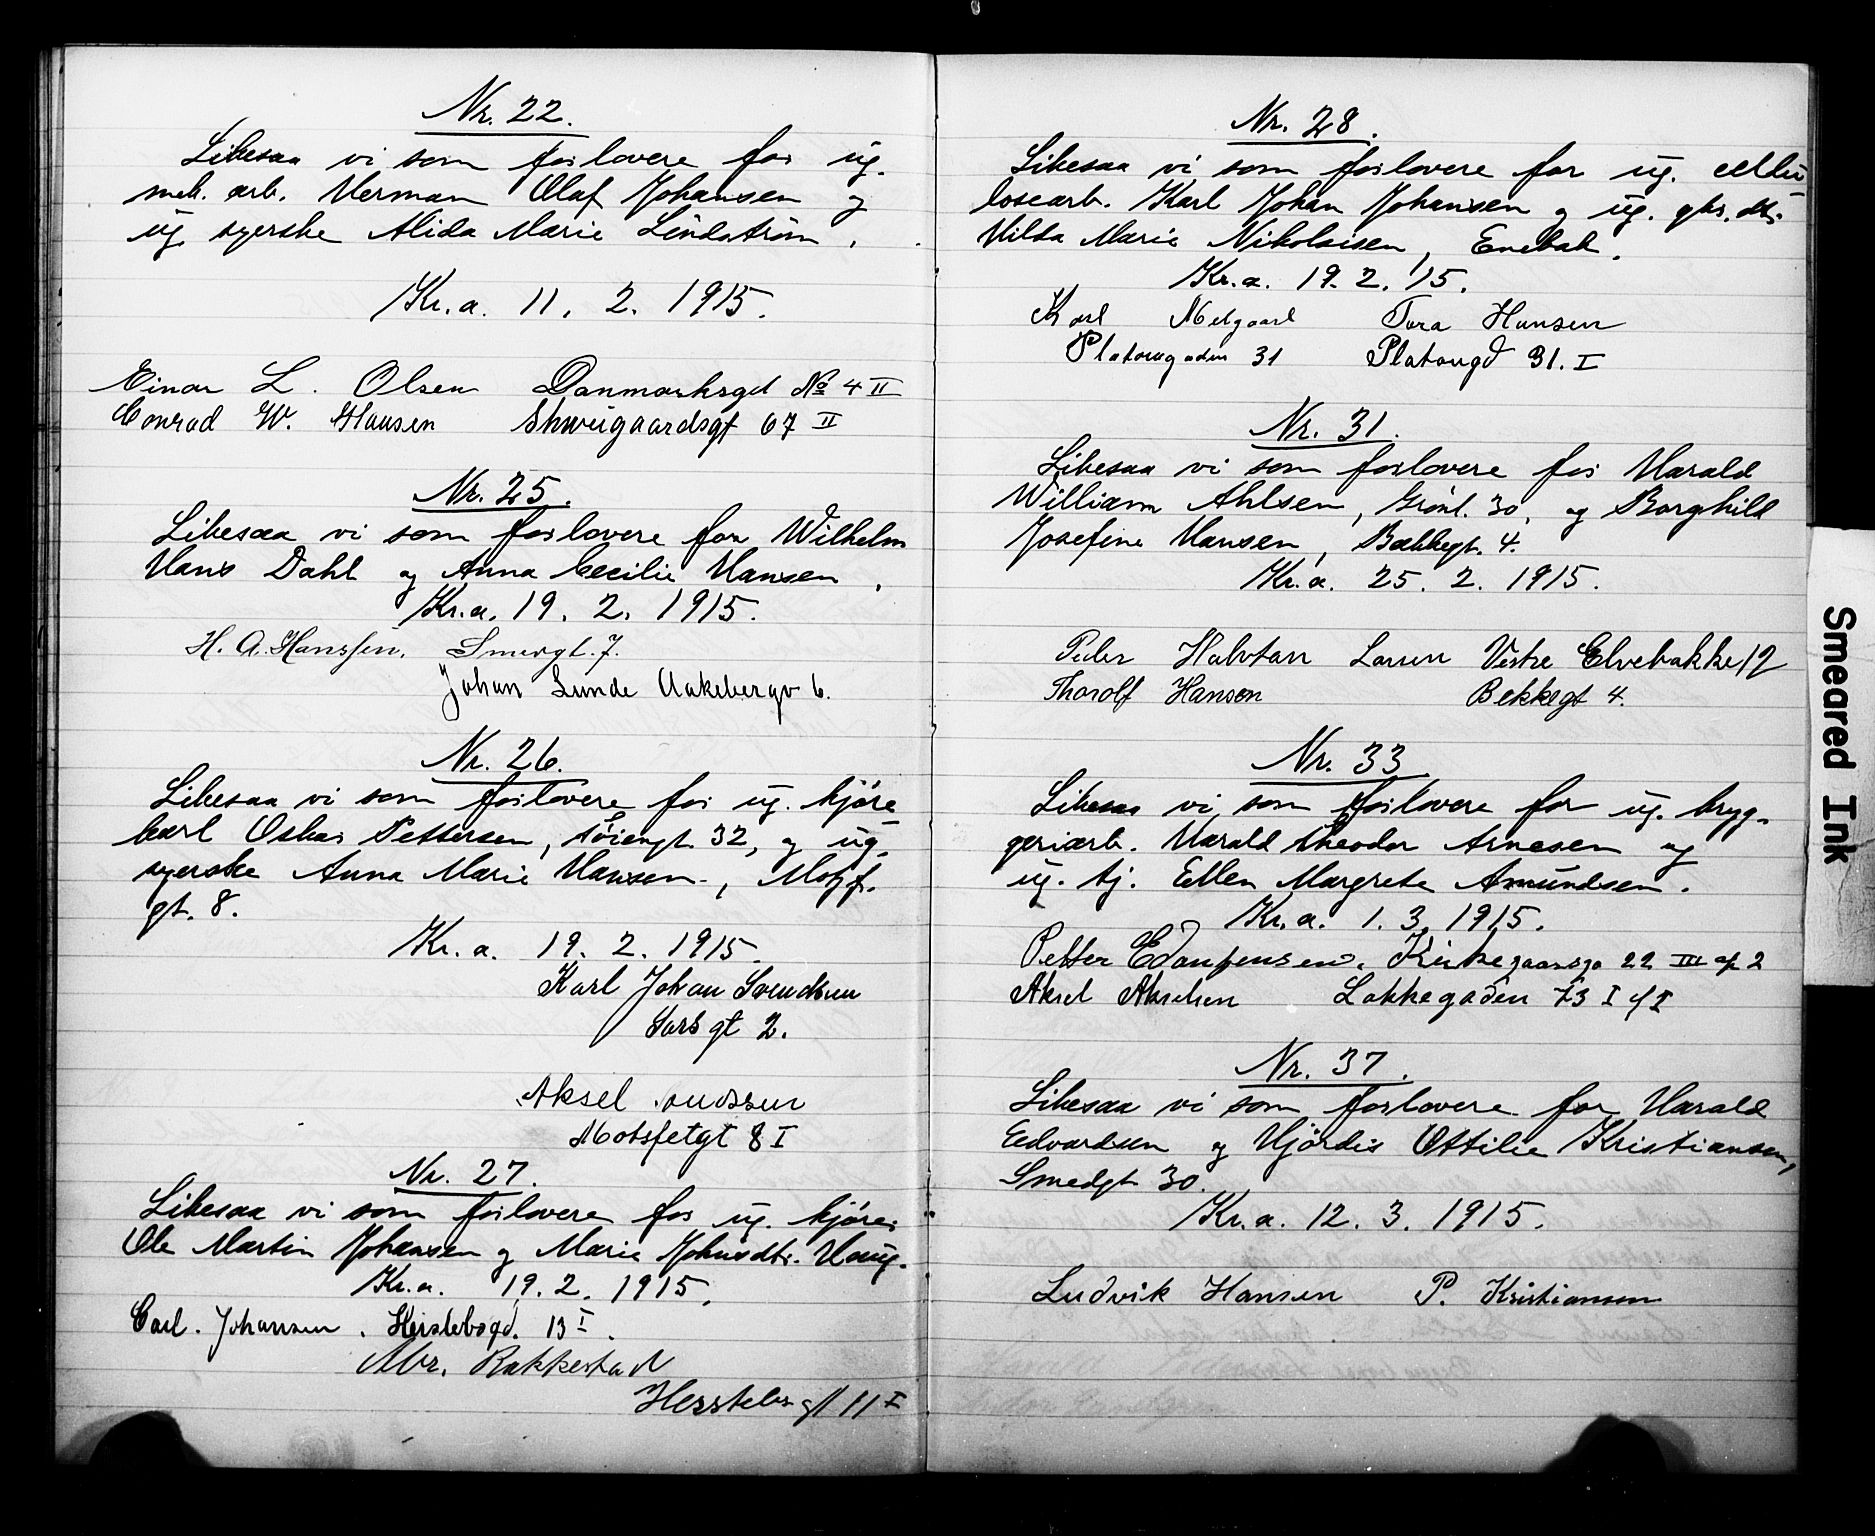 Nr. 22.
Likesaa vi som forlovere for ug.
mek. arb. Herman Olaf Johansen og
ug. syerske Alida Marie Lindstrøm.
Kr.a. 11. 2. 1915.
Einar L. Olsen Danmarksgd No 4 II
Conrad W. Hansen Shweigaardsgt 67 II
Nr. 25.
Likesaa vi som forlovere for Wilhelm
Hans Dahl og Anna Cecilie Hansen.
Kr.a. 19. 2. 1915.
H. A. Hanssen. Smergt. 7.
Johan Lunde Aakebergv 6.
Nr. 26.
Likesaa vi som forlovere for ug. kjøre
karl Oskar Pettersen, Tøiengt. 32, og ug.
syerske Anna Marie Hansen, Motzf.
gt. 8.
Kr.a. 19. 2. 1915.
Karl Johan Svendsen
Sars gt 2.
Aksel
Motsfetgt 8 I
Nr. 27.
Likesaa vi som forlovere for ug. kjører
Ole Martin Johansen og Marie Johnsdtr. Haug.
Kr.a. 19. 2. 1915.
Carl. Johansen. Herslebsgd. 13 I.
Mbr. Rakkestad
Herslebs gt 11 I
Nr. 28.
Likesaa vi som forlovere for ug. cellu
losearb. Karl Johan Johansen og ug. gbr. dtr.
Hilda Marie Nikolaisen, Enebak.
Kr.a. 19. 2. 15.
Karl Melgaard Tora Hansen
Platougaden 31 Platougd 31. I
Nr. 31.
Likesaa vi som forlovere for Harald
William Ahlsen, Grønl. 30, og Borghild
Josefine Hansen, Bekkegt. 4.
Kr.a. 25. 2. 1915.
Peder Halvdan Larsen Vestre Elvebakke 12
Thorolf Hanson Bekkegt 4.
Nr. 33
Likesaa vi som forlovere for ug. bryg-
geriarb. Harald Theodor Arnesen og
ug. tj. Ellen Margrete Amundsen.
Kr.a. 1. 3. 1915.
Petter 22 III op 2
Aksel Akselsen Lakkegaden 73 I
Nr. 37.
Likesaa vi som forlovere for Harald
Edvardsen og Hjørdis Ottilie Kristiansen,
Smedgt 30.
Kr.a. 12. 3. 1915.
Ludvik Hansen P. Kristiansen
Smeared Ink